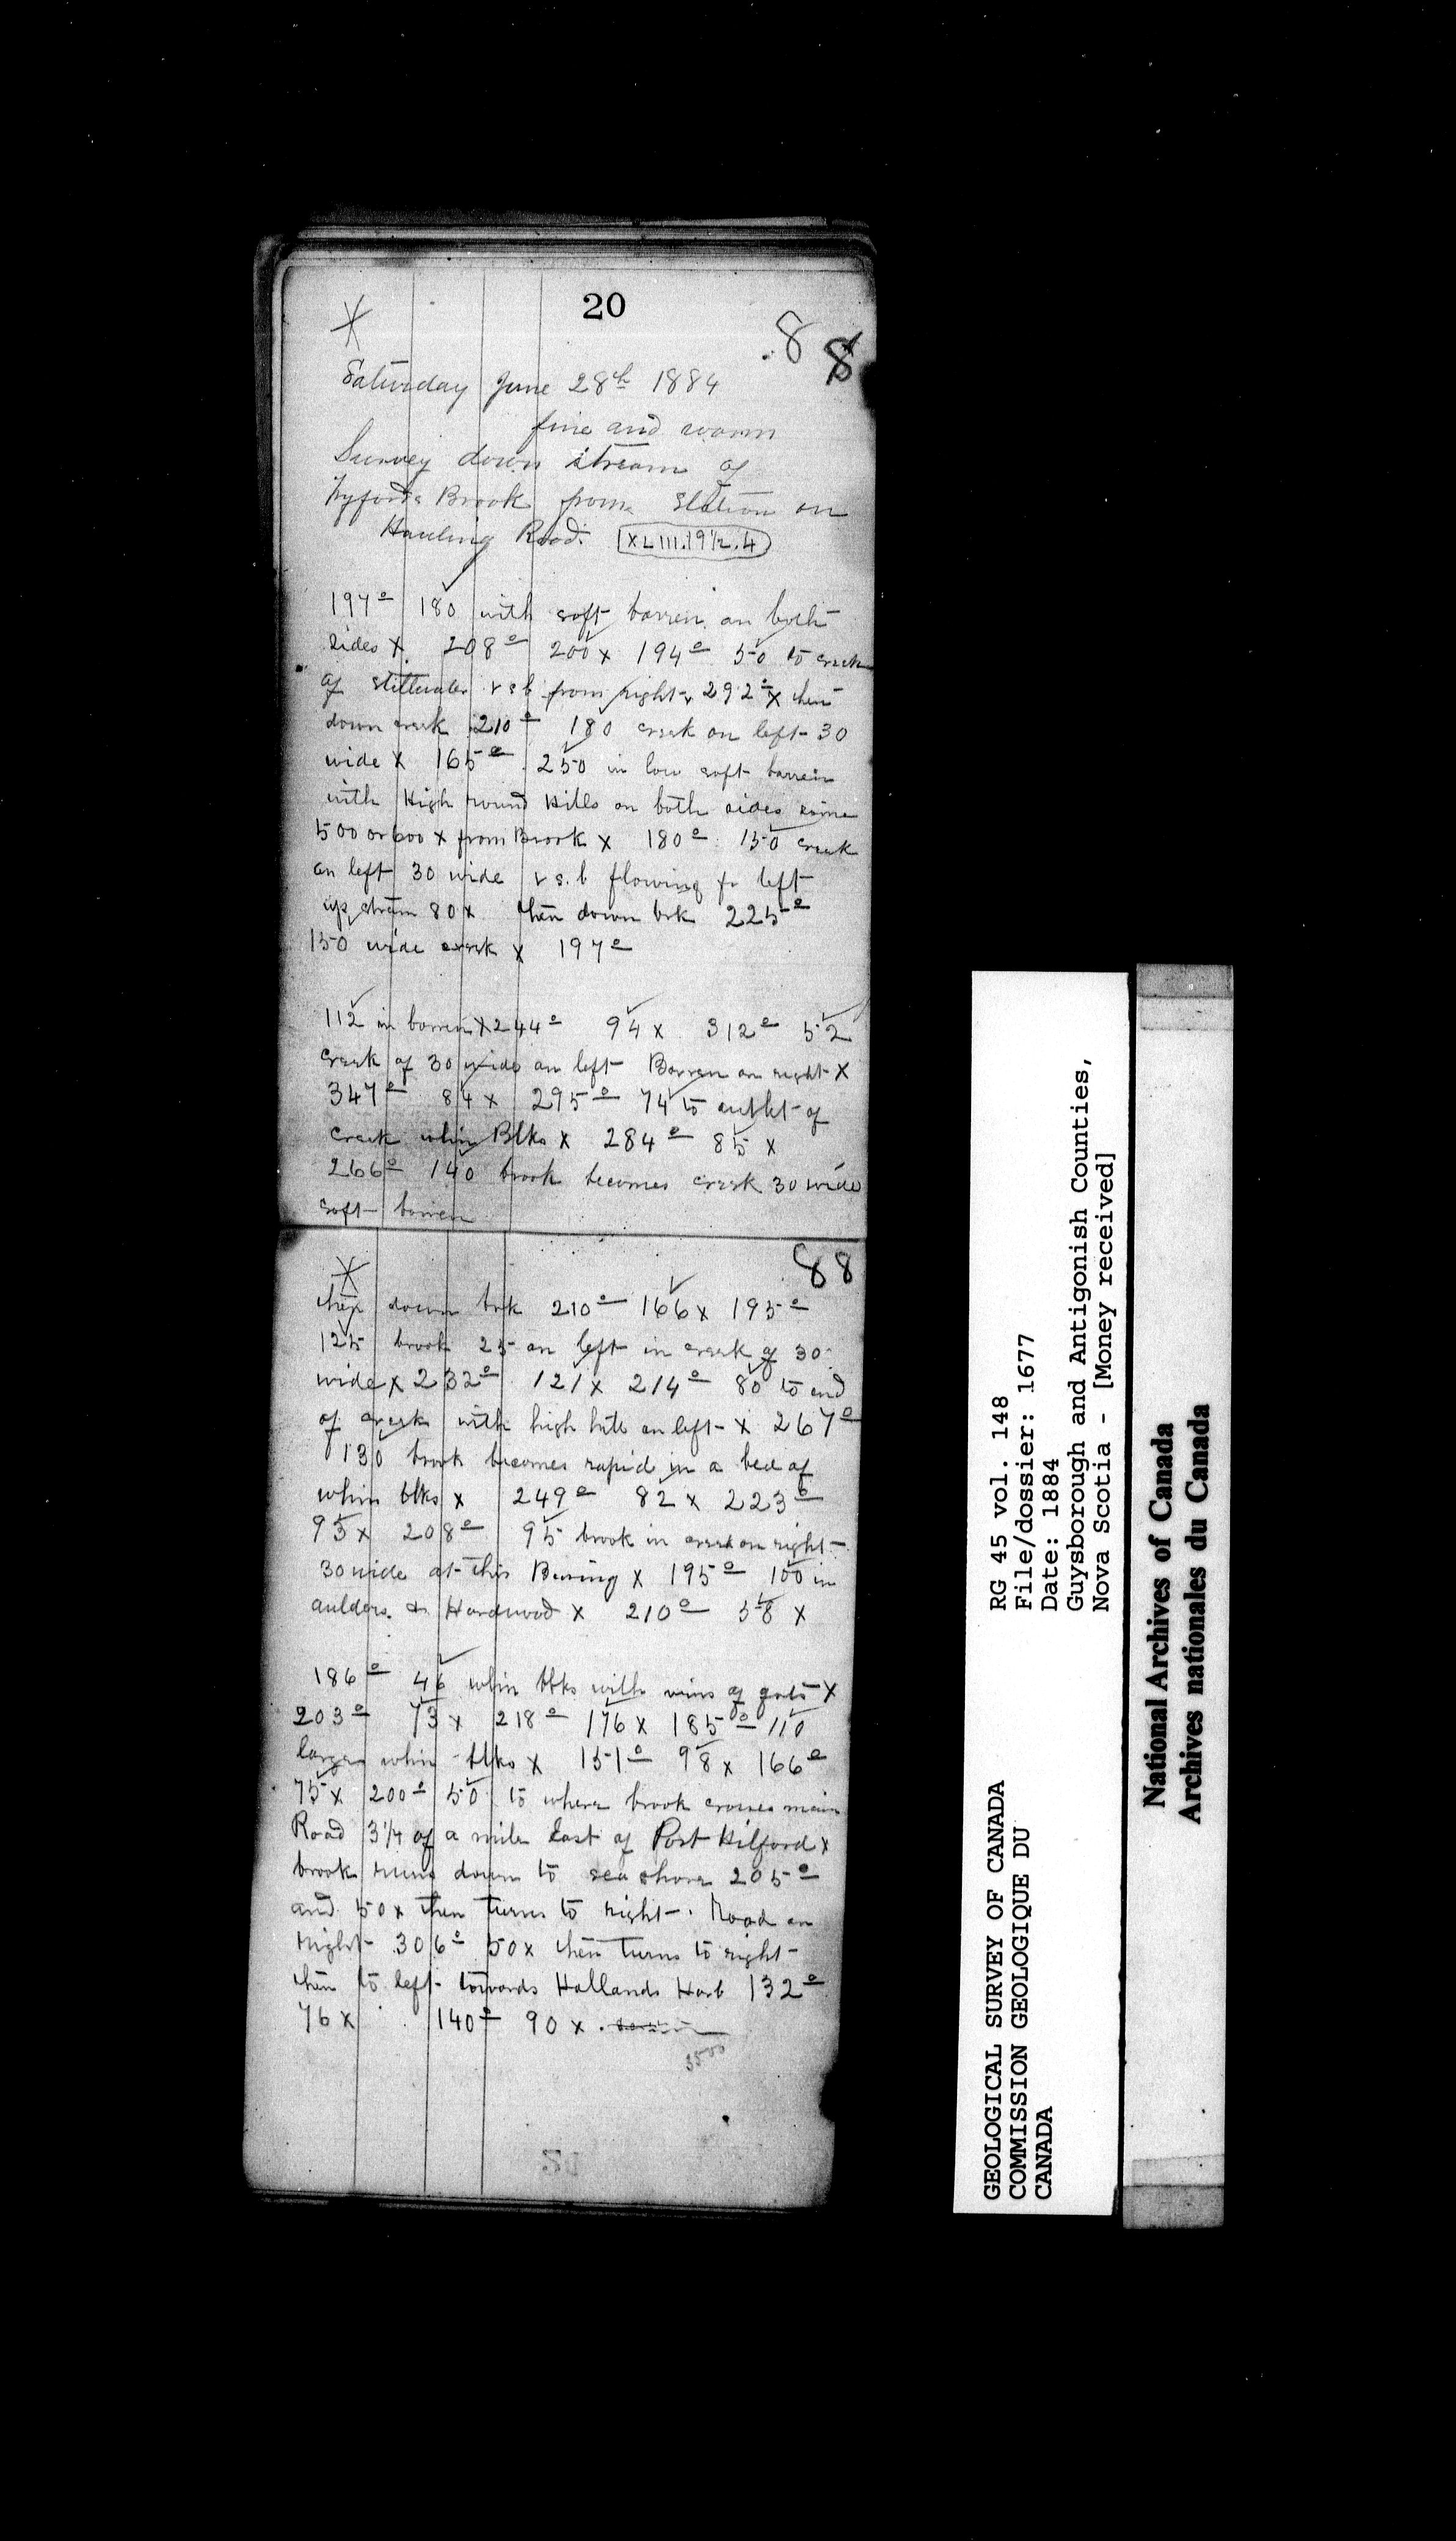 20
8 8
Saturday June 28th 1884
fine and warm
Survey down stream of
Brook from Station on
Hauling Road. XLIII.19½.4
197° 180 with soft barren on both
sides X 208° 200 x 194° 50 to creek
of stillwater & s b from right 292° X then
down creek 210° 180 creek on left 30
wide X 165° 250 in low soft barren
with High round Hills on both sides some
500 or 600 x from Brook X 180° 150 creek
on left 30 wide & s.b flowing fr left
up stream 80 x then down brk 225°
150 wide creek X 197°
112 in barren X 244° 94 x 312° 52
creek of 30 wide on left Barren on right X
347° 84 x 295° 74 to outlet of
creek whin Blks X 284° 85 x
266° 140 brook becomes creek 30 wide
soft barren
88
X
then down brk 210° 166 x 195°
125 brook 25 on left in creek of 30
wide x 232° 121 x 214° 80 to end
of creek with high hill on left X 267°
130 brook becomes rapid in a bed of
whin blks x 249° 82 x 223°
95 x 208° 95 brook in creek on right
30 wide at this Bearing X 195° 100 in
aulders & Hardwood X 210° 58 X
186° 46 whin blks with vains of qrts X
203° 73 x 218° 176 x 185° 110
large whin blks X 151° 98 x 166°
75 x 200° 50 to where brook crosses main
Road 3/4 of a mile East of Port Hilford x
brook runs down to sea shore 205°
and 50 x then turns to right. Road on
right 306° 50 x then turns to right
then to left towards Hollands Harb 132°
76 x 140° 90 x
3500
21
GEOLOGICAL SURVEY OF CANADA
COMMISSION GEOLOGIQUE DU
CANADA
RG 45 vol. 148
File/dossier: 1677
Date: 1884
Guysborough and Antigonish Counties,
Nova Scotia - [Money received]
National Archives of Canada
Archives nationales du Canada